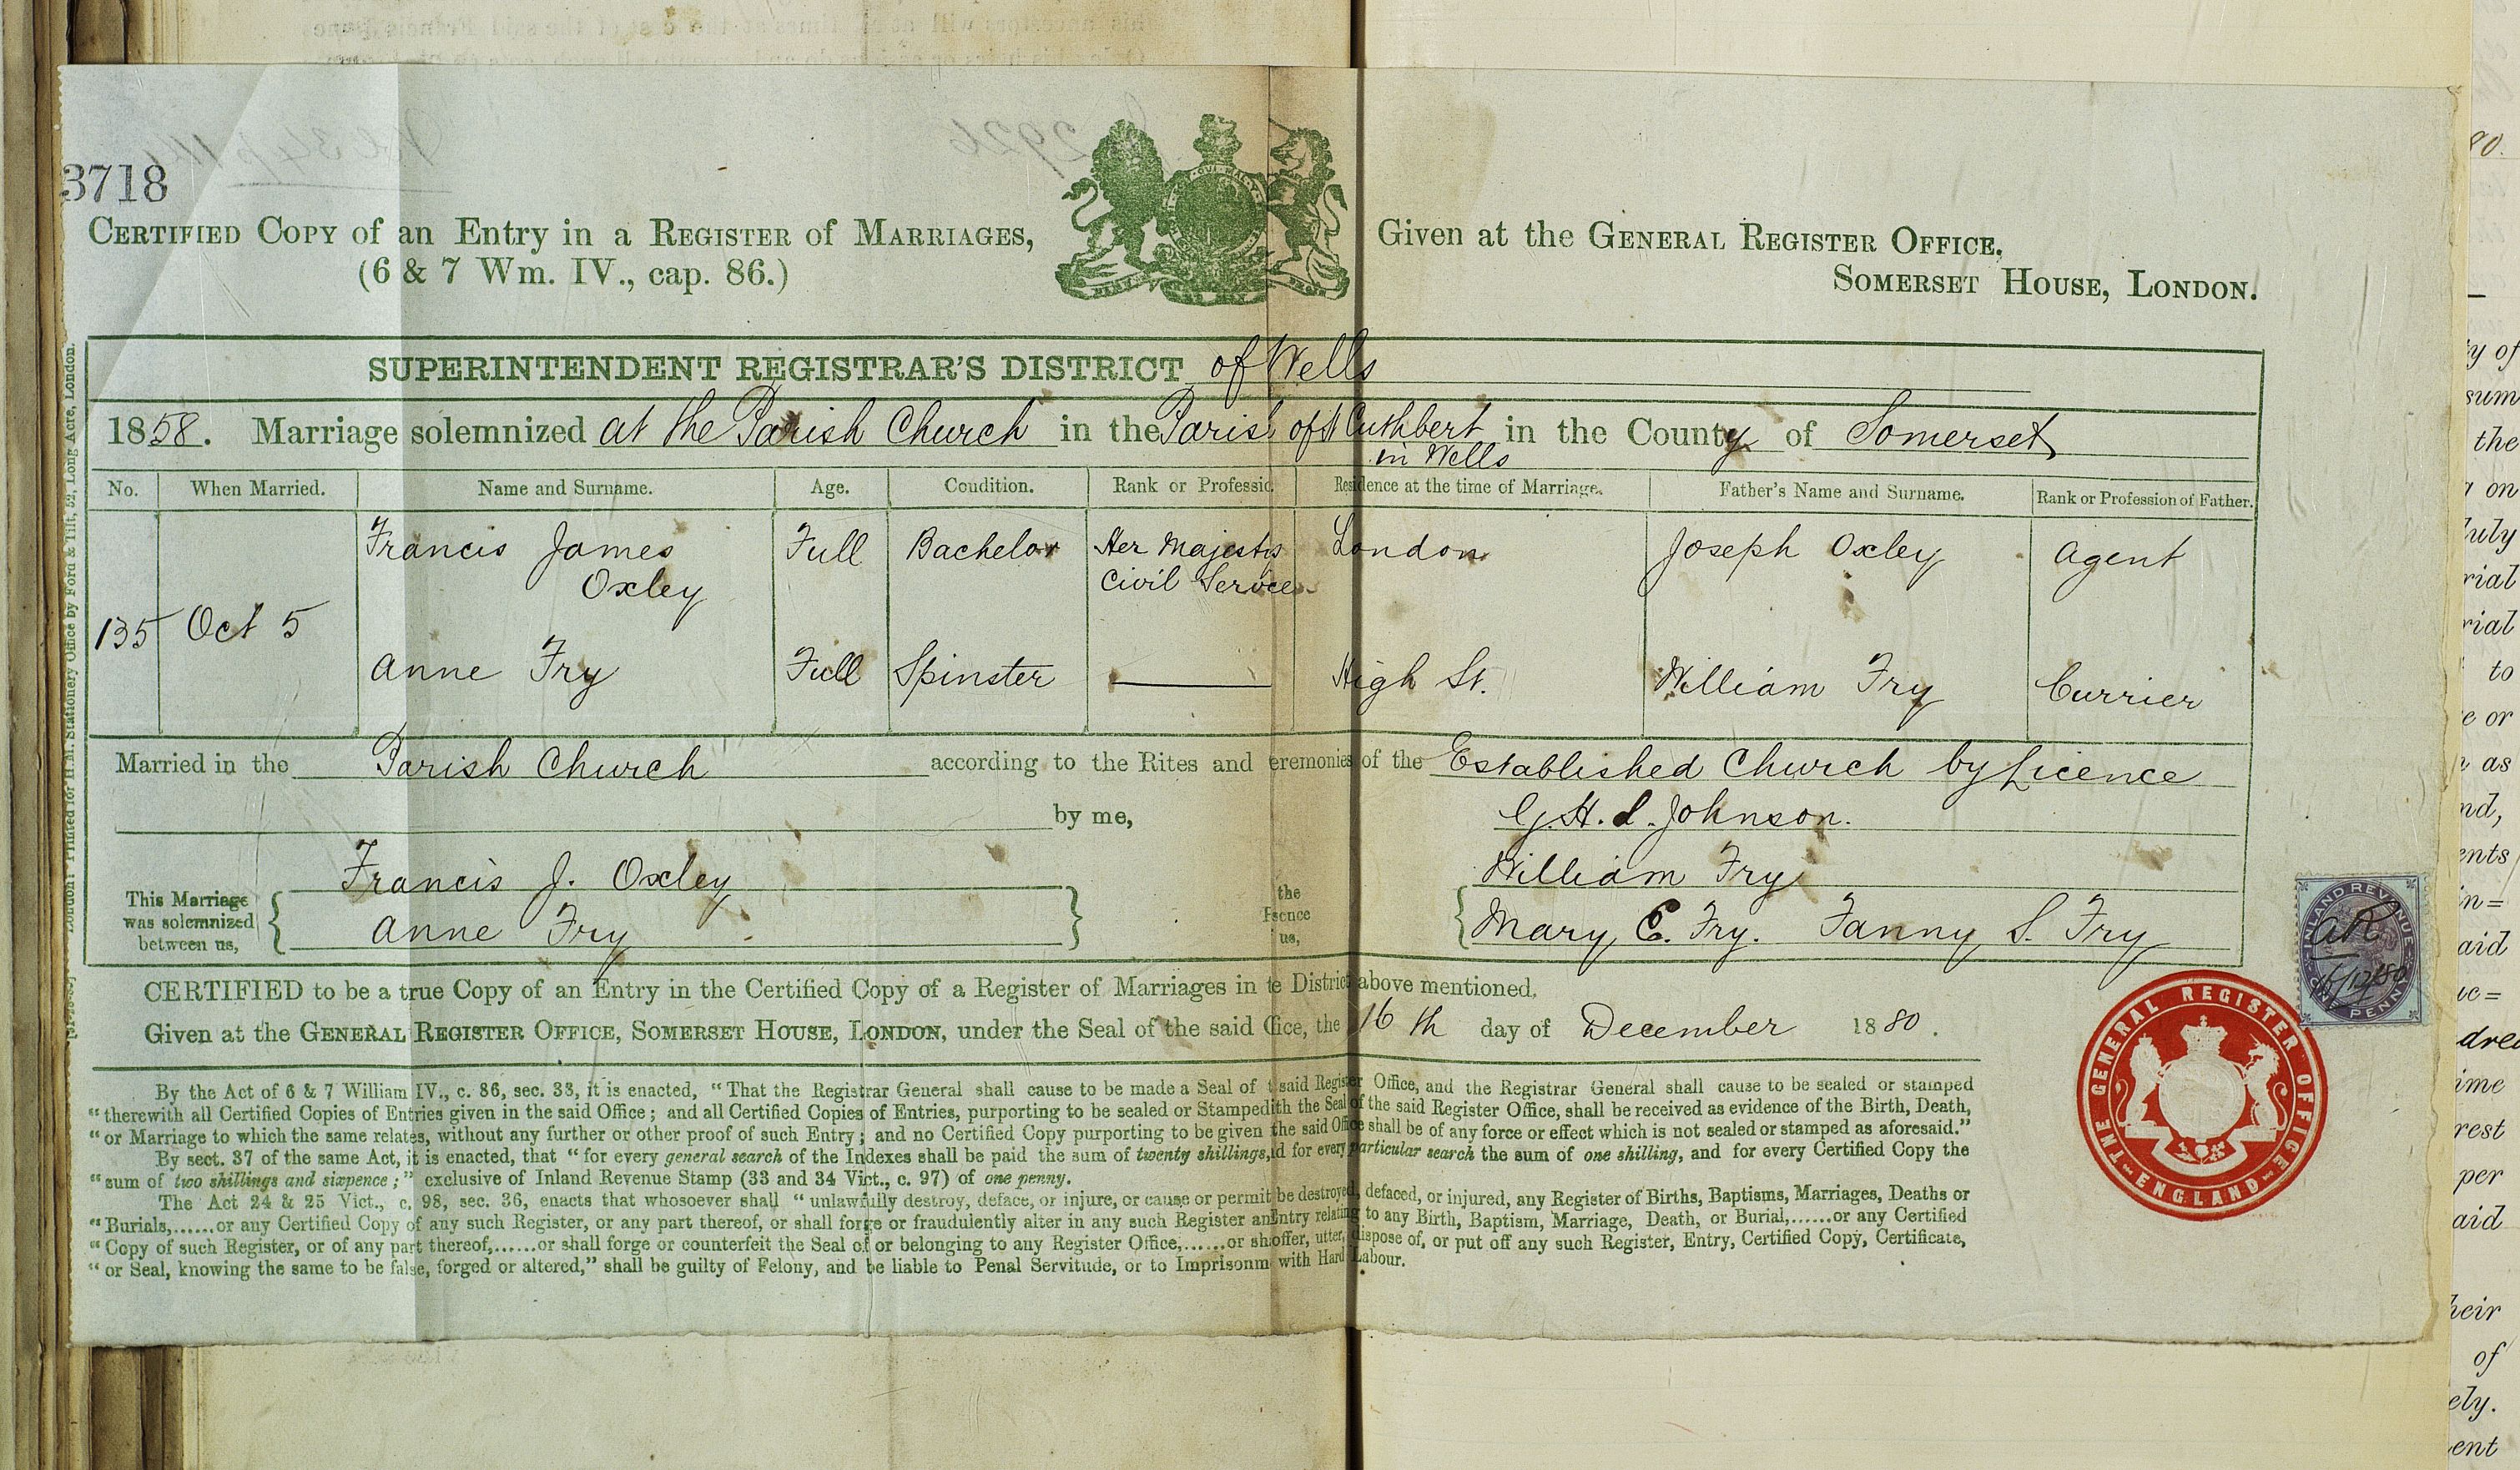 3718
CERTIFIED COPY of an Entry in a REGISTER of MARRIAGES,
(6 & 7 Wm. IV., cap. 86.)
Given at the GENERAL REGISTER OFFICE,
SOMERSET HOUSE, LONDON.
SUPERINTENDENT REGISTRAR'S DISTRICT of Wells
1858. Marriage solemnized at the Parish Church in the Paris of St Cuthbert in the County of Somerset
in Wells
No. When Married. Name and Surname. Age. Condition. Rank or Professio Residence at the time of Marriage. Father's Name and Surname. Rank or Profession of Father.
Francis James Full Bachelor Her Majestys London Joseph Oxley Agent
Oxley Civil Service
135 Oct 5
Anne Fry Full Spinster High St. William Fry Currier
Married in the Parish Church according to the Rites and eremonies of the Established Church by Licence
by me, G. H. L. Johnson.
This Marriage was solemnized between us,
Francis J. Oxley
Anne Fry
the
sence
us,
William Fry
Mary E. Fry. Fanny S. Fry
CERTIFIED to be a true Copy of an Entry in the Certified Copy of a Register of Marriages in te District above mentioned.
Given at the GENERAL REGISTER OFFICE, SOMERSET HOUSE, LONDON, under the Seal of the said ffice, the 16th day of December 1880.
By the Act of 6 & 7 William IV., c. 86, sec. 38, it is enacted, "That the Registrar General shall cause to be made a Seal of said Register Office, and the Registrar General shall cause to be sealed or stamped
"therewith all Certified Copies of Entries given in the said Office; and all Certified Copies of Entries, purporting to be sealed or Stamped ith the Seal of the said Register Office, shall be received as evidence of the Birth, Death,
"or Marriage to which the same relates, without any further or other proof of such Entry; and no Certified Copy purporting to be given the said Office shall be of any force or effect which is not sealed or stamped as aforesaid."
By sect. 37 of the same Act, it is enacted, that "for every general search of the Indexes shall be paid the sum of twenty shillings, d for every particular search the sum of one shilling, and for every Certified Copy the
"sum of two shillings and sixpence;" exclusive of Inland Revenue Stamp (33 and 34 Vict., c. 97) of one penny.
The Act 24 & 25 Vict., c. 98, sec. 36, enacts that whosoever shall "unlawfully destroy, deface, or injure, or cause or permit be destroyed, defaced, or injured, any Register of Births, Baptisms, Marriages, Deaths or
"Burials,......or any Certified Copy of any such Register, or any part thereof, or shall forge or fraudulently alter in any such Register an Entry relating to any Birth, Baptism, Marriage, Death, or Burial,......or any Certified
"Copy of such Register, or of any part thereof,......or shall forge or counterfeit the Seal of or belonging to any Register Office,......or sh offer, utter, dispose of, or put off any such Register, Entry, Certified Copy, Certificate,
"or Seal, knowing the same to be false, forged or altered," shall be guilty of Felony, and be liable to Penal Servitude, or to Imprisonm with Hard Labour.
INLAND REVENUE
ONE PENNY
AR
16/12/80
THE GENERAL REGISTER OFFICE
ENGLAND
Printed for H.M. Stationery Office by Ford & Tilt, 52, Long Acre, London.
80.
ty of
sum
the
on
July
rial
rial
to
or
as
nd,
ents
in=
aid
uc=
dred
ime
rest
per
aid
heir
of
ely.
ent